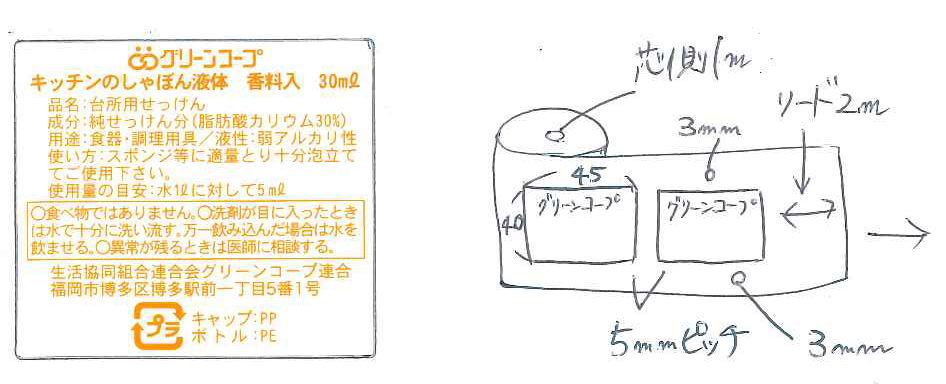 グリーンコープ
キッチンのしゃぼん液体 香料入 30mℓ
品名:台所用せっけん
成分:純せっけん分(脂肪酸カリウム30%)
用途:食器・調理用具/液性:弱アルカリ性
使い方:スポンジ等に適量とり十分泡立て
てご使用下さい。
使用量の目安:水1ℓに対して5mℓ
○食べ物ではありません。○洗剤が目に入ったとき
は水で十分に洗い流す。万一飲み込んだ場合は水を
飲ませる。○異常が残るときは医師に相談する。
生活協同組合連合会グリーンコープ連合
福岡市博多区博多駅前一丁目5番1号
プラ
キャップ:PP
ボトル:PE
芯側1m
リード2m
3mm
45
40
グリーンコープ
グリーンコープ
5mmピッチ
3mm